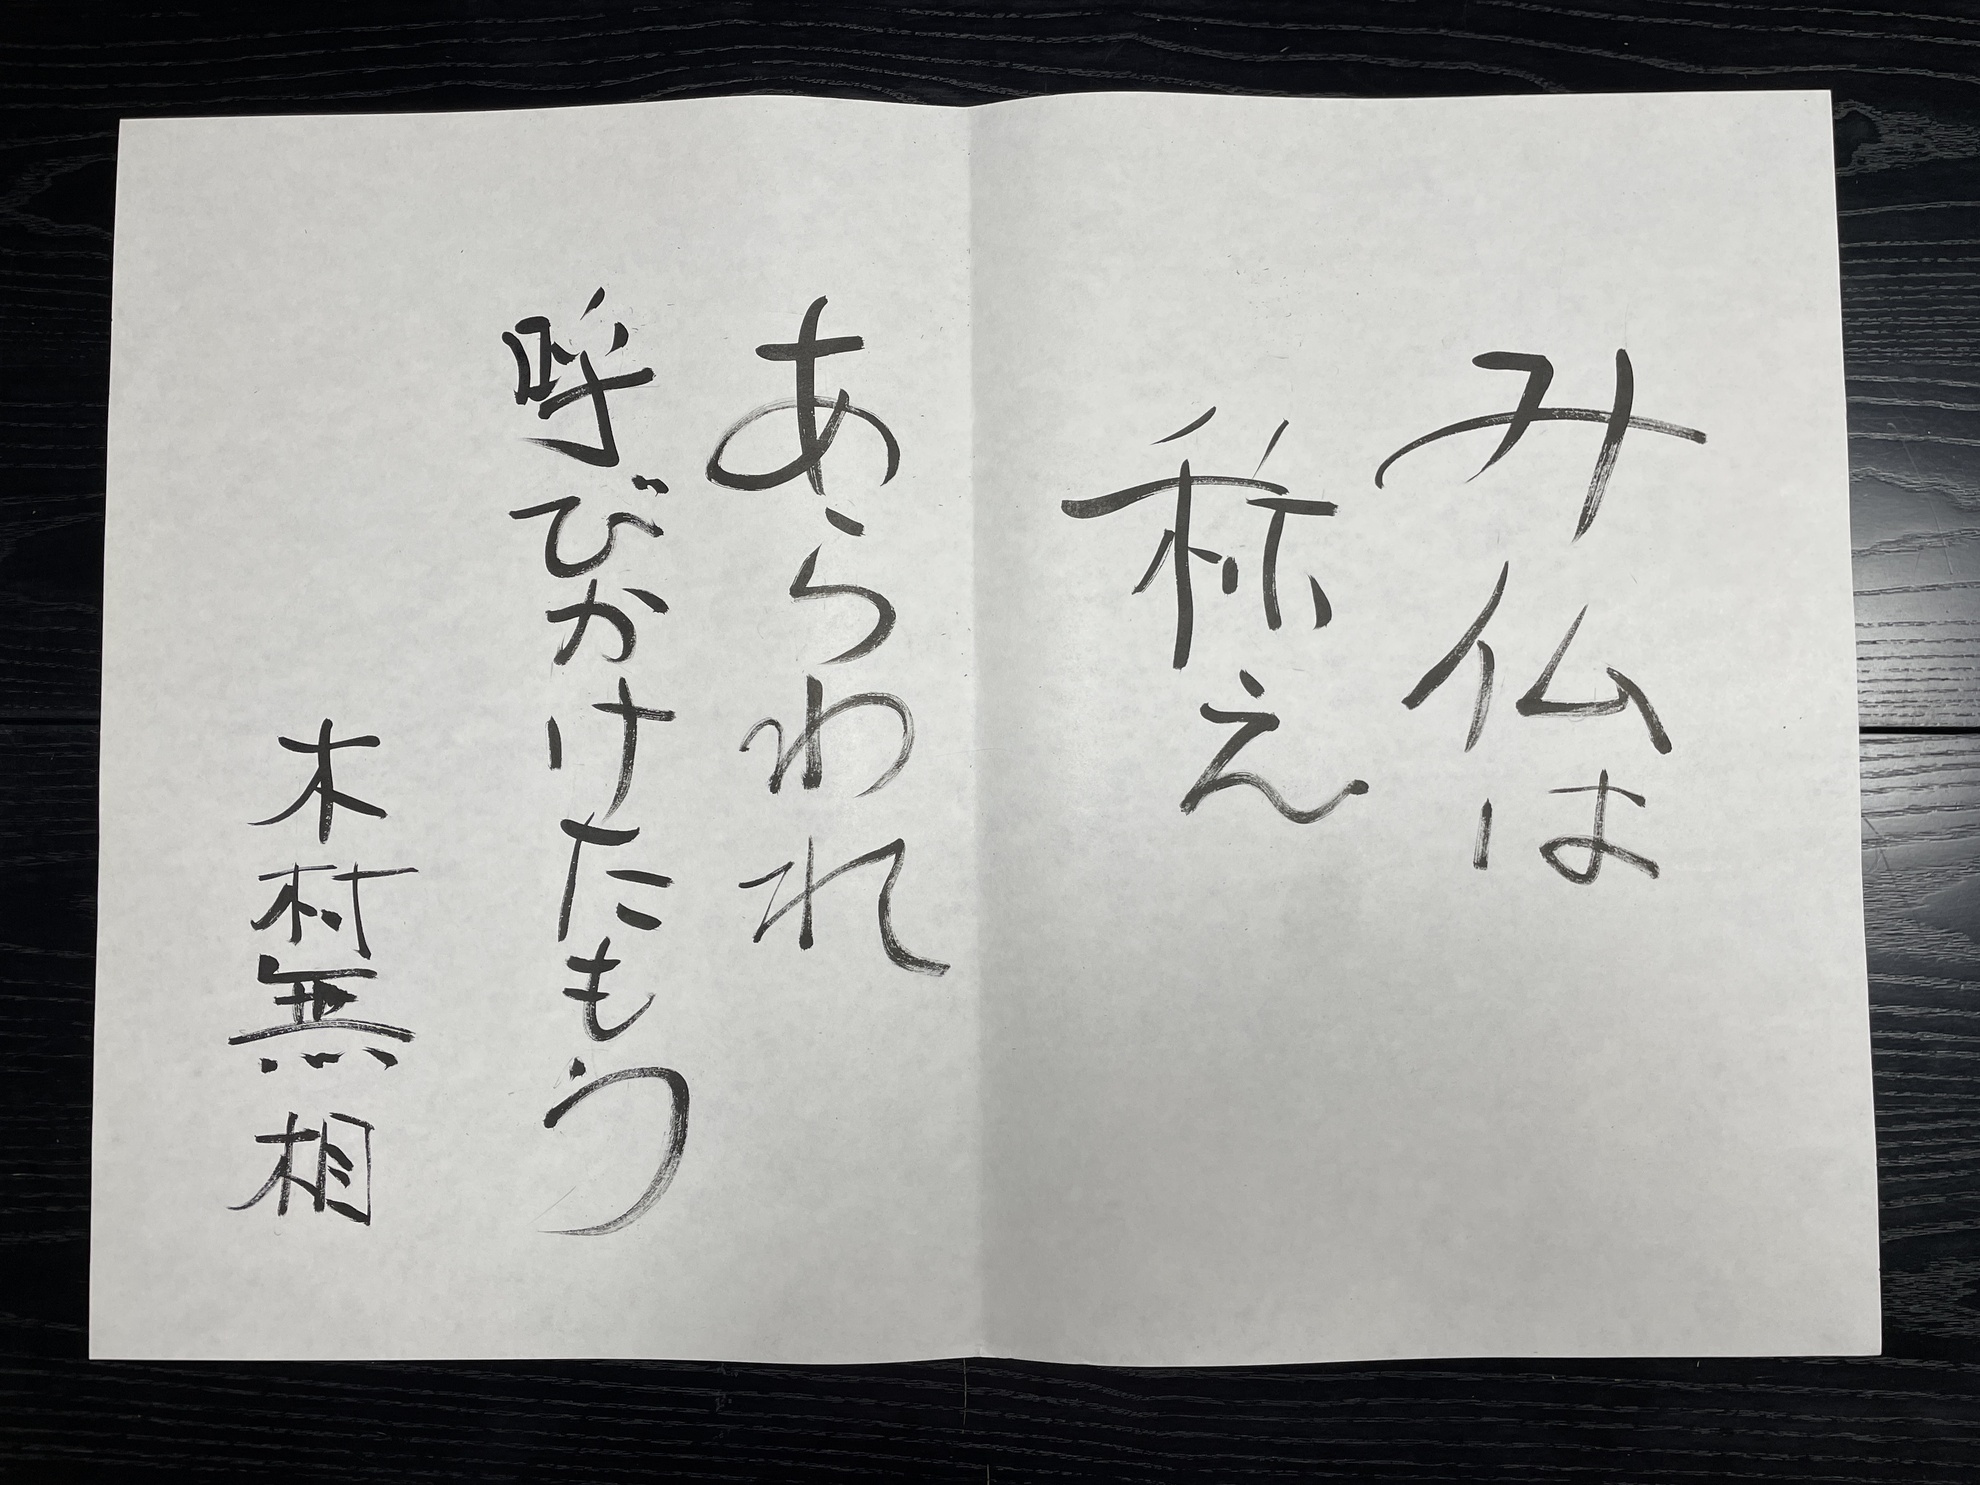 み仏は
称え
あらわれ
呼びかけたもう
木村無相